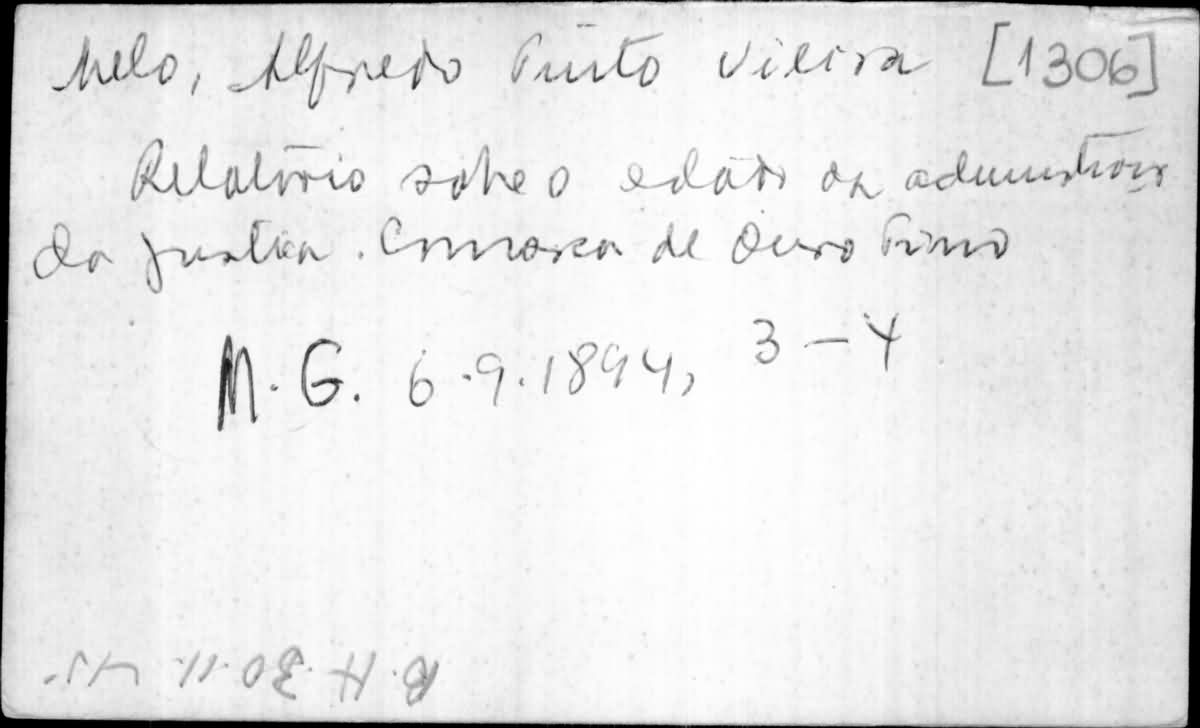 Melo, Alfredo Pinto Vieira [1306]
Relatório sobre o estado da administração
da justiça. Comarca de Ouro Preto
M.G. 6.9.1894, 3-4
B.H. 30.11.